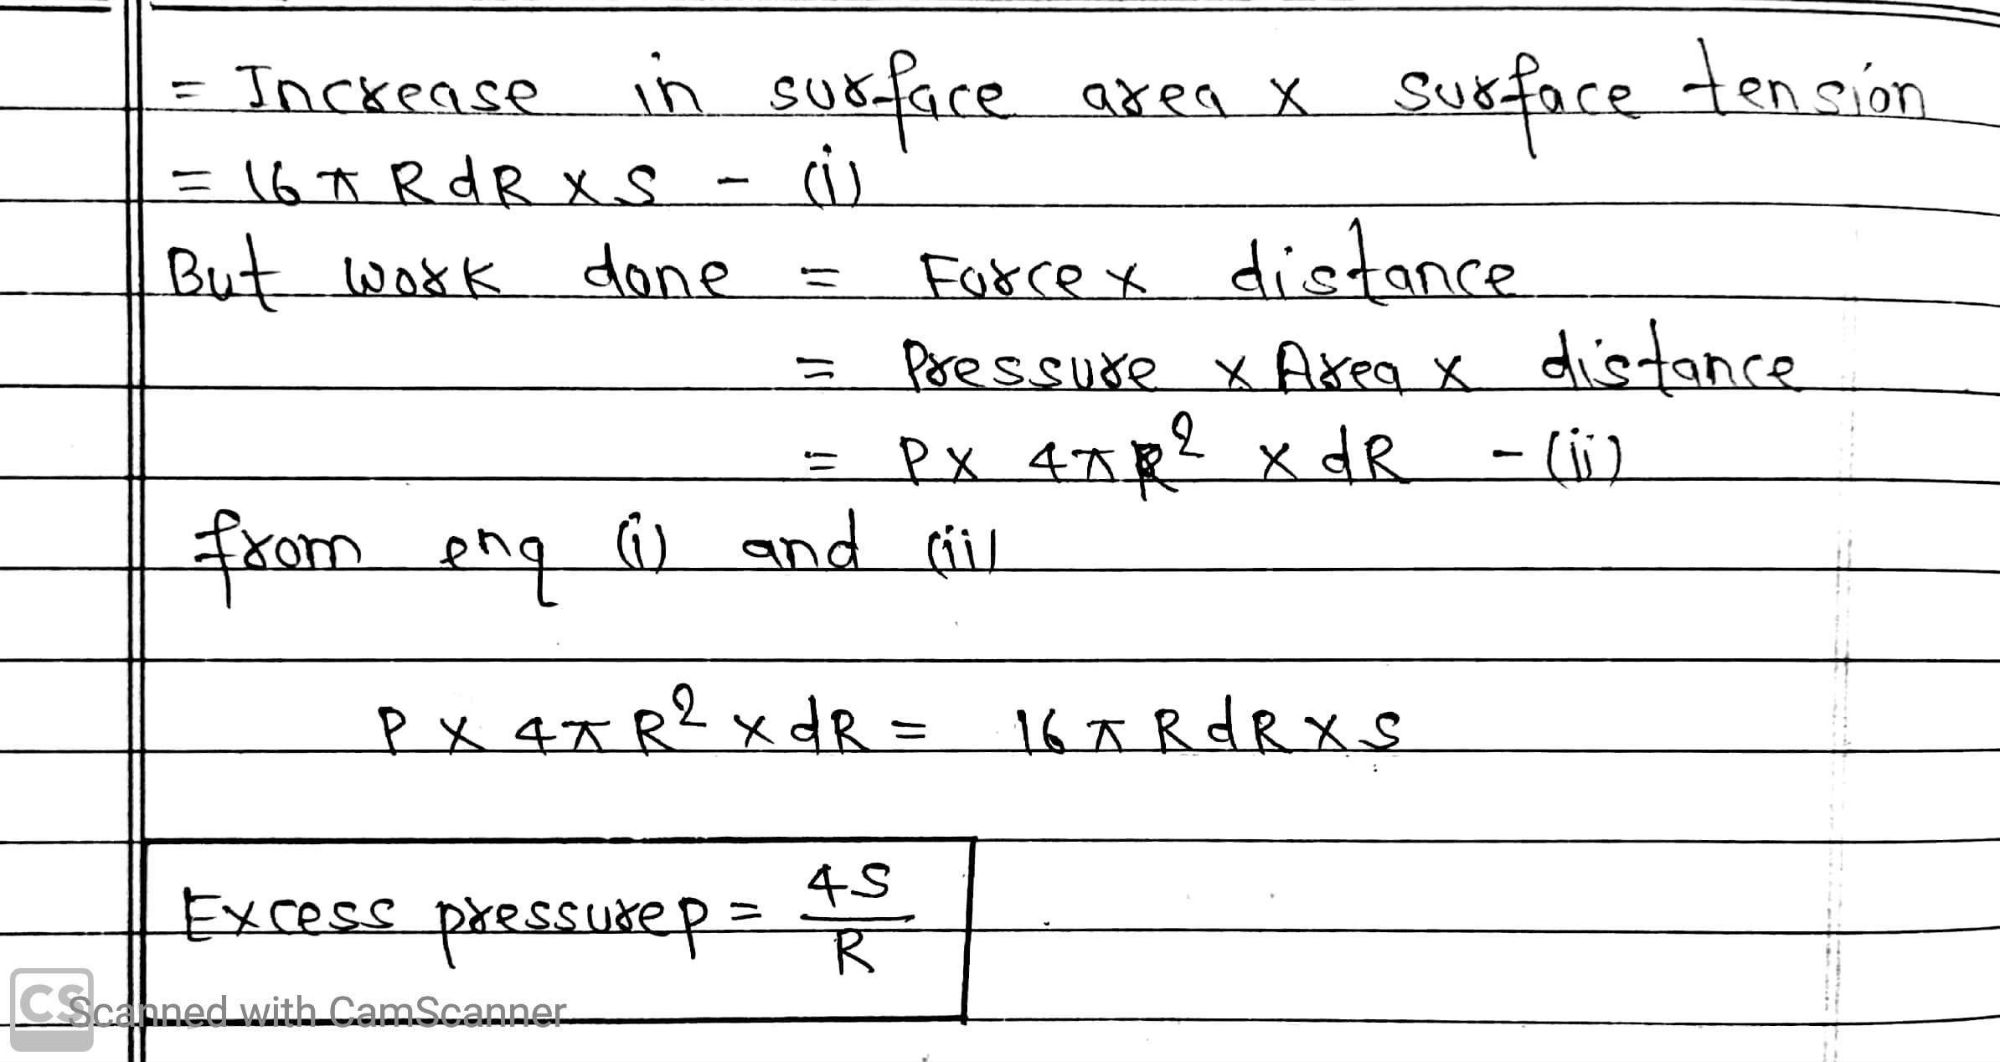 = Increase in surface area x surface tension
= 16 π R dR x S - (i)
But work done = Force x distance
= Pressure x Area x distance
= P x 4πR² x dR - (ii)
from enq (i) and (ii)
P x 4πR² x dR = 16 π R dR x S
Excess pressure p = 4S/R
CS Scanned with CamScanner